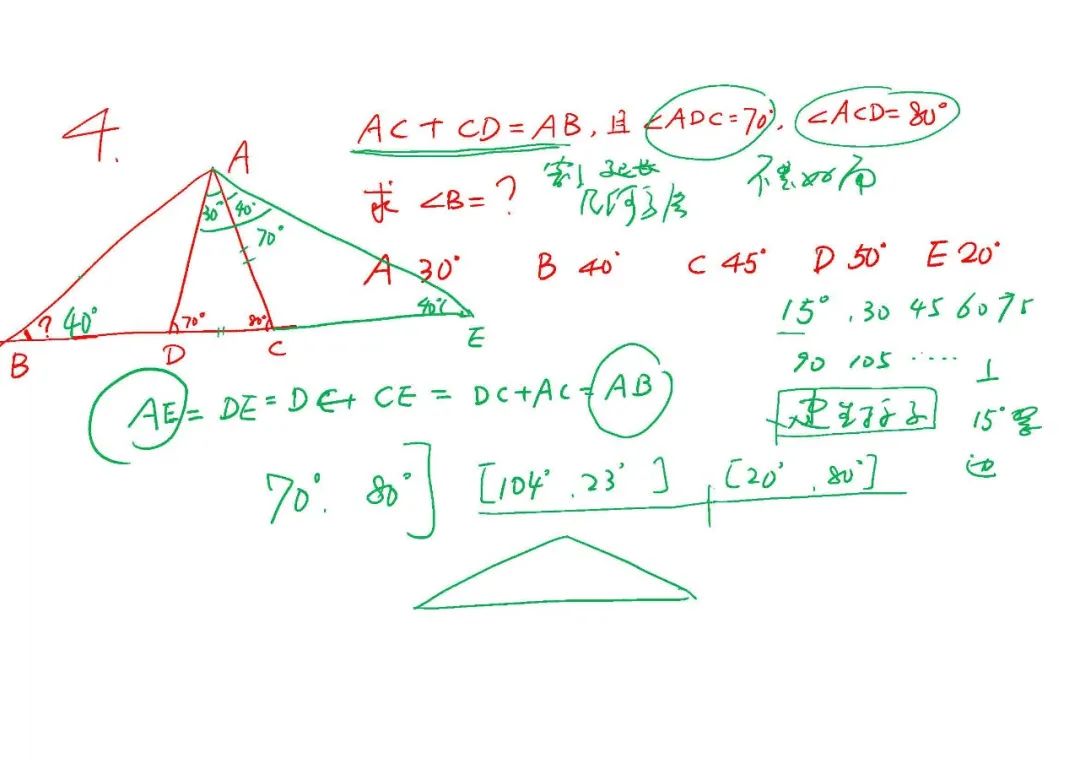 4.
AC + CD = AB, 且 ∠ADC = 70°, ∠ACD = 80°
求 ∠B = ?
A 30° B 40° C 45° D 50° E 20°
A
30° 40°
70°
? 40° 70° 80° 40°
B D C E
15°, 30 45 60 75
90 105 ……
⊥
15°
边
AE = DE = DC + CE = DC + AC = AB
70°. 80°] [104°, 23°] [20°, 80°]